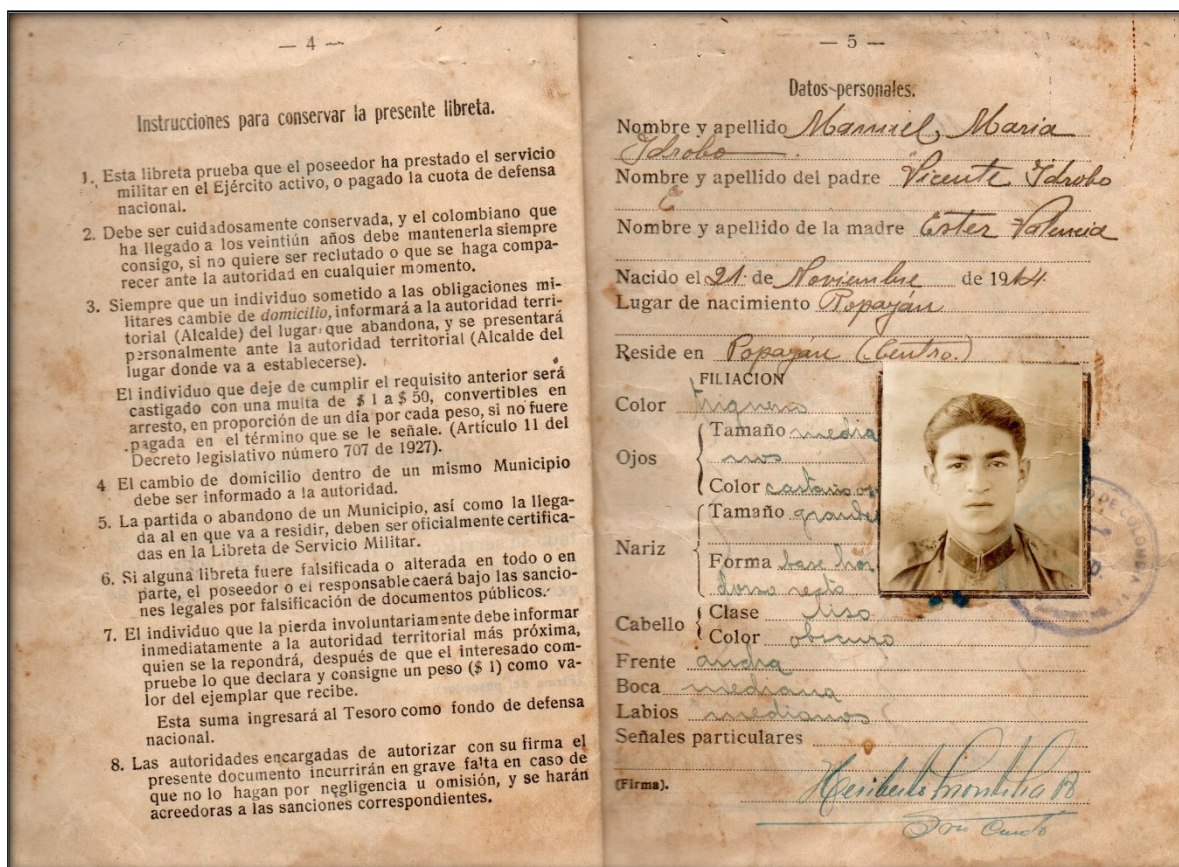 — 4 —
Instrucciones para conservar la presente libreta.
1. Esta libreta prueba que el poseedor ha prestado el servicio
militar en el Ejército activo, o pagado la cuota de defensa
nacional.
2. Debe ser cuidadosamente conservada, y el colombiano que
ha llegado a los veintiún años debe mantenerla siempre
consigo, si no quiere ser reclutado o que se haga compa-
recer ante la autoridad en cualquier momento.
3. Siempre que un individuo sometido a las obligaciones mi-
litares cambie de domicilio, informará a la autoridad terri-
torial (Alcalde) del lugar que abandona, y se presentará
personalmente ante la autoridad territorial (Alcalde del
lugar donde va a establecerse).
El individuo que deje de cumplir el requisito anterior será
castigado con una multa de $ 1 a $ 50, convertibles en
arresto, en proporción de un día por cada peso, si no fuere
pagada en el término que se le señale. (Artículo 11 del
Decreto legislativo número 707 de 1927).
4 El cambio de domicilio dentro de un mismo Municipio
debe ser informado a la autoridad.
5. La partida o abandono de un Municipio, así como la llega-
da al en que va a residir, deben ser oficialmente certifica-
das en la Libreta de Servicio Militar.
6. Si alguna libreta fuere falsificada o alterada en todo o en
parte, el poseedor o el responsable caerá bajo las sancio-
nes legales por falsificación de documentos públicos.
7. El individuo que la pierda involuntariamente debe informar
inmediatamente a la autoridad territorial más próxima,
quien se la repondrá, después de que el interesado com-
pruebe lo que declara y consigne un peso ($ 1) como va-
lor del ejemplar que recibe.
Esta suma ingresará al Tesoro como fondo de defensa
nacional.
8. Las autoridades encargadas de autorizar con su firma el
presente documento incurrirán en grave falta en caso de
que no lo hagan por negligencia u omisión, y se harán
acreedoras a las sanciones correspondientes.
— 5 —
Datos personales.
Nombre y apellido Manuel Maria
Idrobo
Nombre y apellido del padre Vicente Idrobo
Nombre y apellido de la madre Ester Valencia
Nacido el 21 de Noviembre de 1914
Lugar de nacimiento Popayán
Reside en Popayán (Centro.)
FILIACION
Color trigueño
Ojos
Tamaño media
nos
Color castaño
Nariz
Tamaño grande
Forma base
dorso recto
Cabello
Clase liso
Color obscuro
Frente ancha
Boca mediana
Labios medianos
Señales particulares
(Firma). Heriberto
DE COLOMBIA